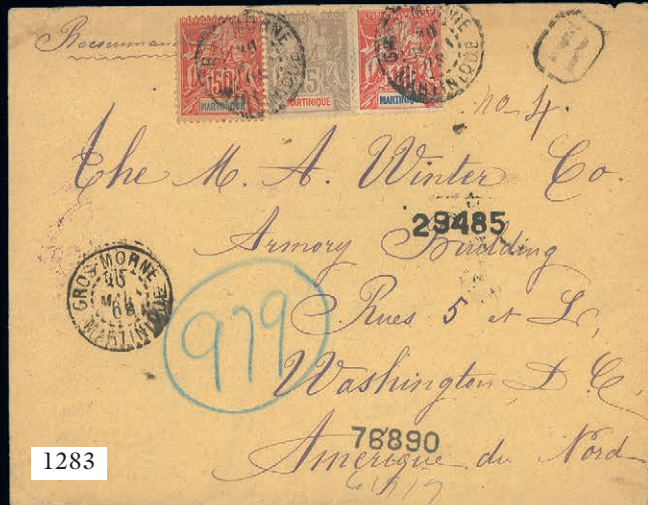 Recommandé
50
MARTINIQUE
15
MARTINIQUE
10
MARTINIQUE
MARTINIQUE
MARTINIQUE
R
no 4.
The M. A. Winter Co.
29485
Armory Building
GROS-MORNE
MARTINIQUE
979
Rues 5 et L,
Washington D. C.
76890
Amérique du Nord
1283